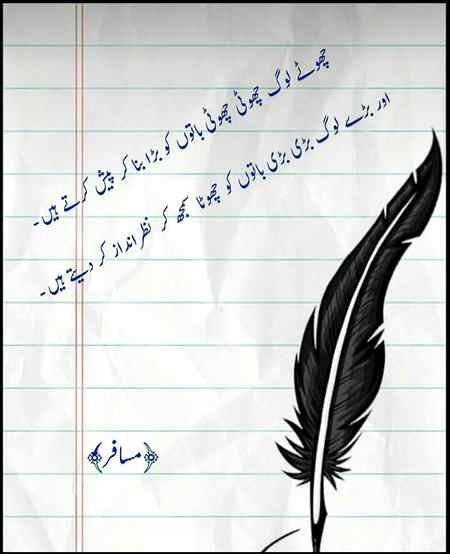 چھوٹے لوگ چھوٹی چھوٹی باتوں کو بڑا بنا کر پیش کرتے ہیں۔
اور بڑے لوگ بڑی بڑی باتوں کو چھوٹا سمجھ کر نظر انداز کر دیتے ہیں۔
﴿مسافر﴾